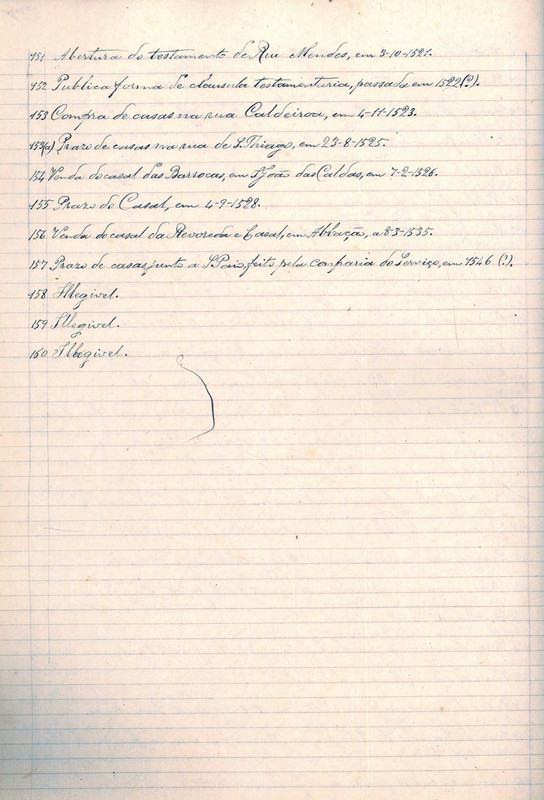 151 Abertura do testamento de Rui Mendes, em 3-10-1521.
152 Publica forma de cláusula testamentaria, passada em 1522(?).
153 Compra de casas na rua Caldeiroa, em 4-11-1523.
153(a) Prazo de casas na rua de S. Thiago, em 23-8-1525.
154 Venda do casal das Barrocas, em S. João das Caldas, em 7-2-1526.
155 Prazo do Casal, em 4-9-1528.
156 Venda do casal da Revoreda e Casal, em Abbação, a 8-3-1535.
157 Prazo de casas junto a S. Paio, feito pela confraria do Serviço, em 1546 (?).
158 Illegivel.
159 Illegivel.
160 Illegivel.